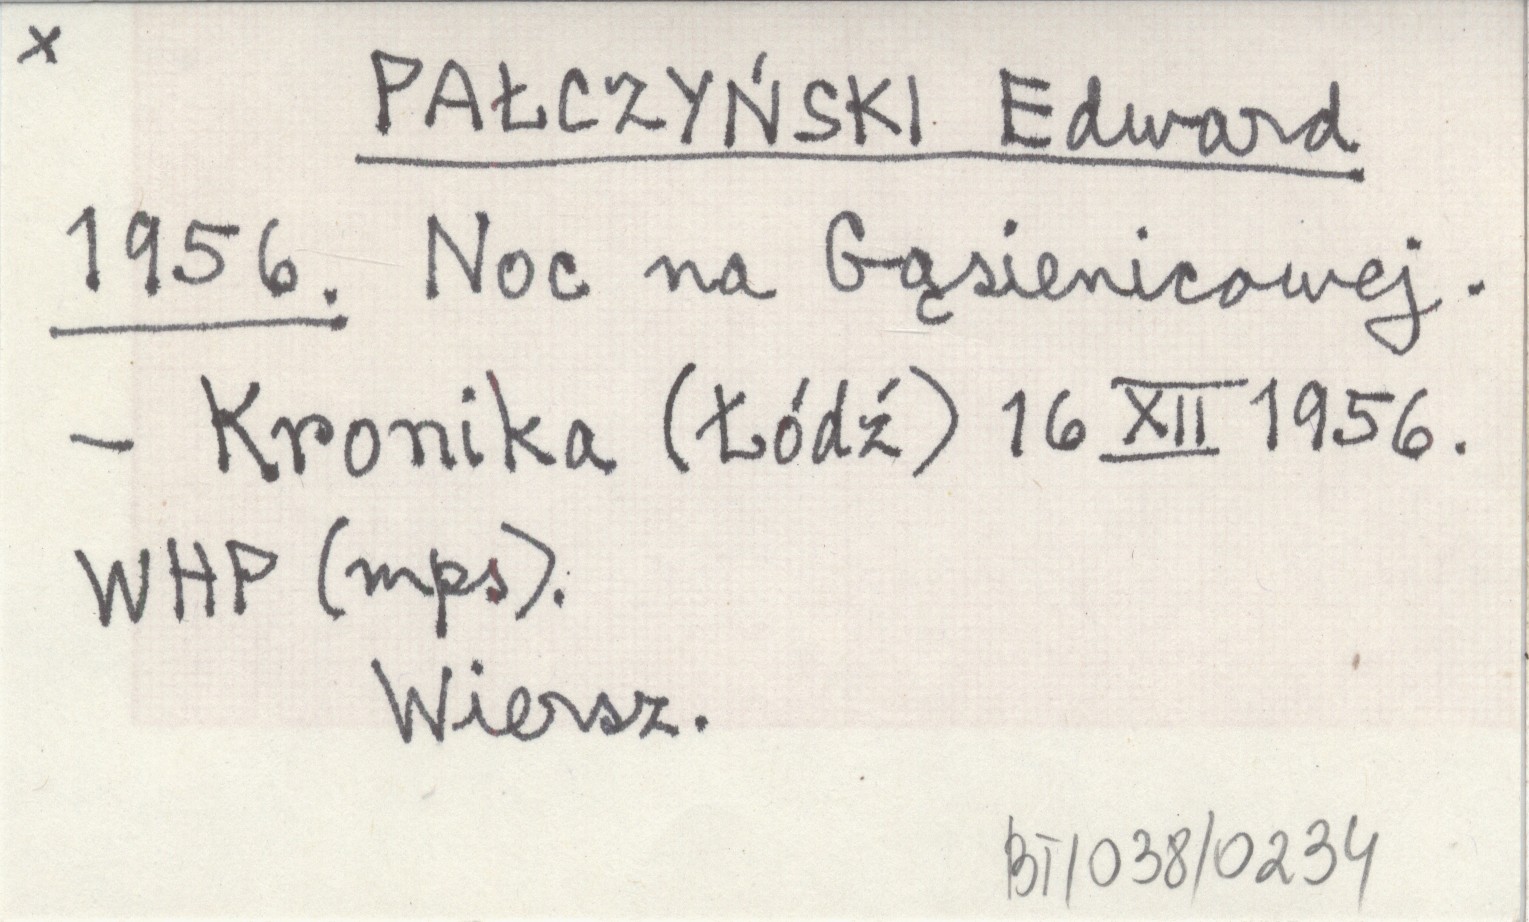 x
PAŁCZYŃSKI Edward
1956. Noc na Gąsienicowej.
- Kronika (Łódź) 16 XII 1956.
WHP (mps).
Wiersz.
BT/038/0234